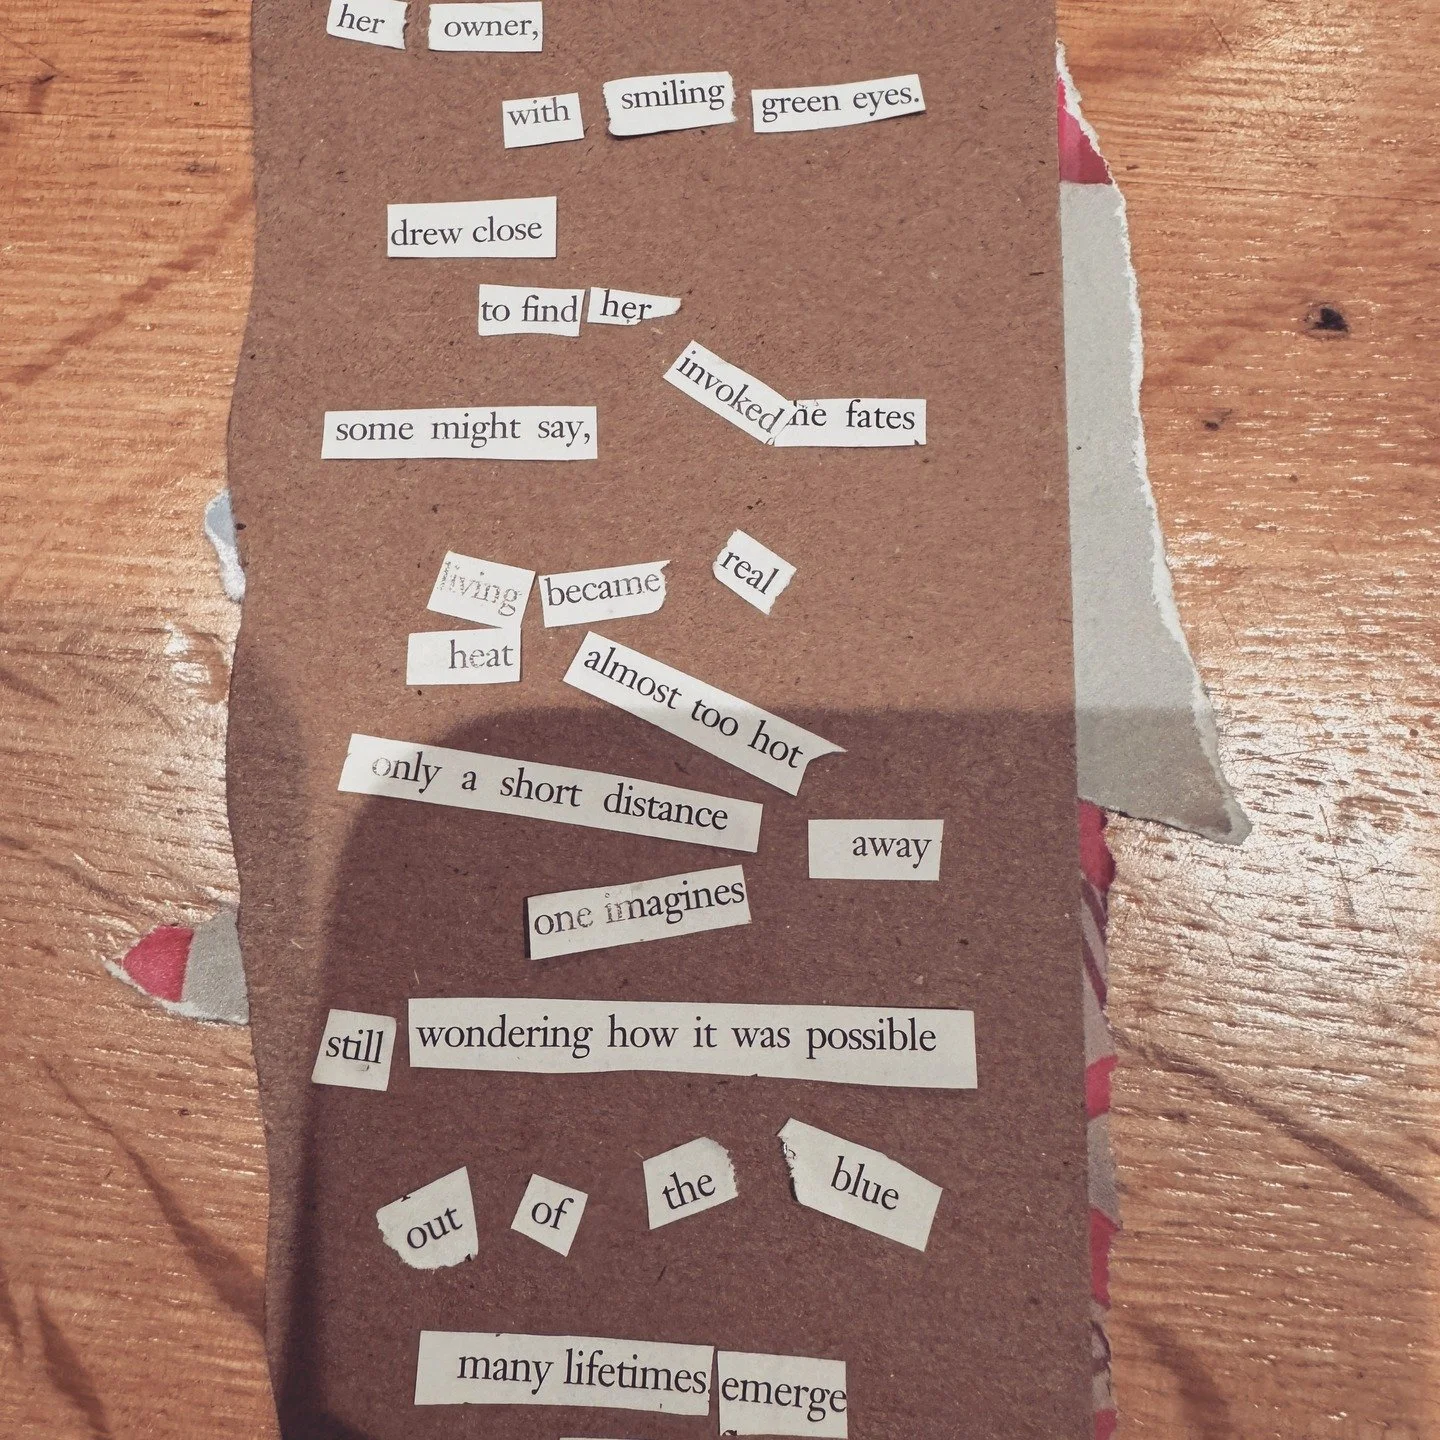 her owner,
with smiling green eyes.
drew close
to find her
invoked he fates
some might say,
living became real
heat almost too hot
only a short distance away
one imagines
still wondering how it was possible
out of the blue
many lifetimes emerge